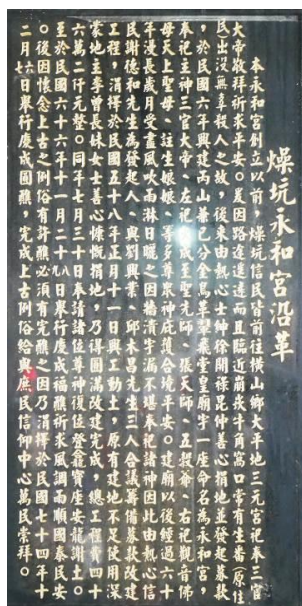 燥坑永和宮沿革
本永和宮創立以前，燥坑信民皆前往橫山鄉大平地三元宮祀奉三官
大帝敬拜祈求平安。美因路途遙遠而且臨近崩崁牛角窩口常有生番（原住
民）出沒無辜殺人之故，後來由熱心士紳徐開祿昆仲善心捐地並發起募款
，於民國六年興建両山兼巳分金鳥革翬飛堂皇廟宇一座命名為永和宮，
奉祀主神三官大帝、左祀大成至聖先師、張天師、五穀爺、右祀觀音佛
母天上聖母、註生娘娘、等多尊眾神庇護合境平安。建廟以後經過六十
年漫長歲月受盡風吹雨淋日曬之因牆潰宇漏不堪奉祀諸神因此由熱心信
民謝德和先生為發起人、與劉興業、邱木昌先生三人合議籌備募款改建
工程，涓擇於民國五十八年正月十一日興工動土，原有建地不足使用深
蒙地主李曾長妹女士善心慷慨捐地，乃得圓滿改建完成，總工程費四十
六萬二仟元整。同年七月三十日奉請諸位尊神復位登龕寶座安龍謝土。
至於民國六十六年十一月二十八日舉行慶成福醮祈求風調雨順國泰民安
。後因懷念上古之例俗有許醮必須有完醮之因乃涓擇於民國七十四年十
二月廿六日舉行慶成圓醮，完成上古例俗給與庶民信仰中心萬民崇拜。